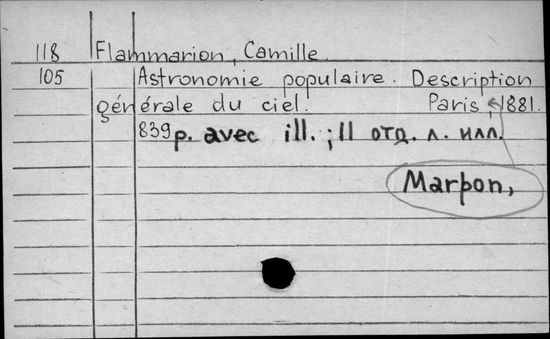 118 Flammarion, Camille.
105 Astronomie populaire. Description
générale du ciel. Paris, 1881.
839 p. avec ill.; 11 отд. л. илл.
Marpon,